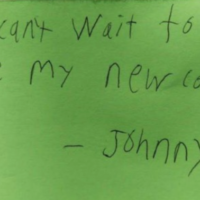 cant wait to
my new
- Johnny